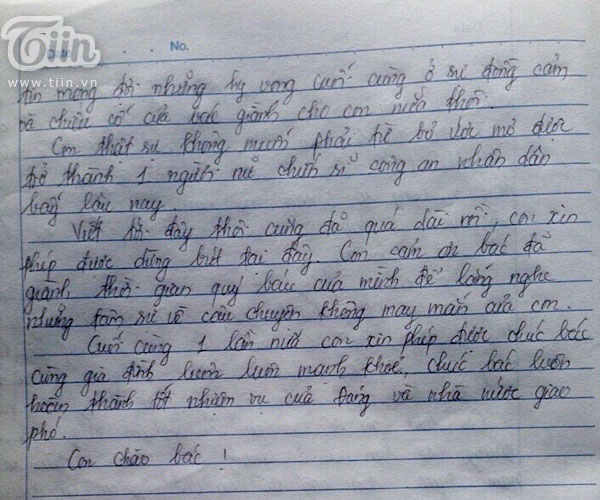 Tiin
www.tiin.vn
No.
mong đợi những hy vọng cuối cùng ở sự đồng cảm
và chiếu cố của bác giành cho con nữa thôi.
Con thật sự không muốn phải từ bỏ ước mơ được
trở thành 1 người nữ chiến sĩ công an nhân dân
bấy lâu nay.
Viết tới đây thôi cũng đã quá dài rồi, con xin
phép được dừng bút tại đây. Con cám ơn bác đã
giành thời gian quý báu của mình để lắng nghe
những tâm sự về câu chuyện không may mắn của con.
Cuối cùng 1 lần nữa con xin phép được chúc bác
cùng gia đình luôn luôn mạnh khoẻ, chúc bác luôn
hoàn thành tốt nhiệm vụ của Đảng và nhà nước giao
phó.
Con chào bác !